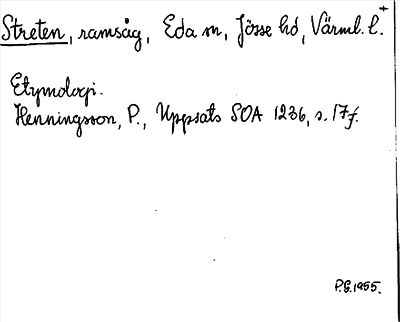 Streten, ramsåg, Eda sn, Jösse hd, Värml. l. +
Etymologi.
Henningsson, P., Uppsats SOA 1236, s. 17 f.
P.G. 1955.